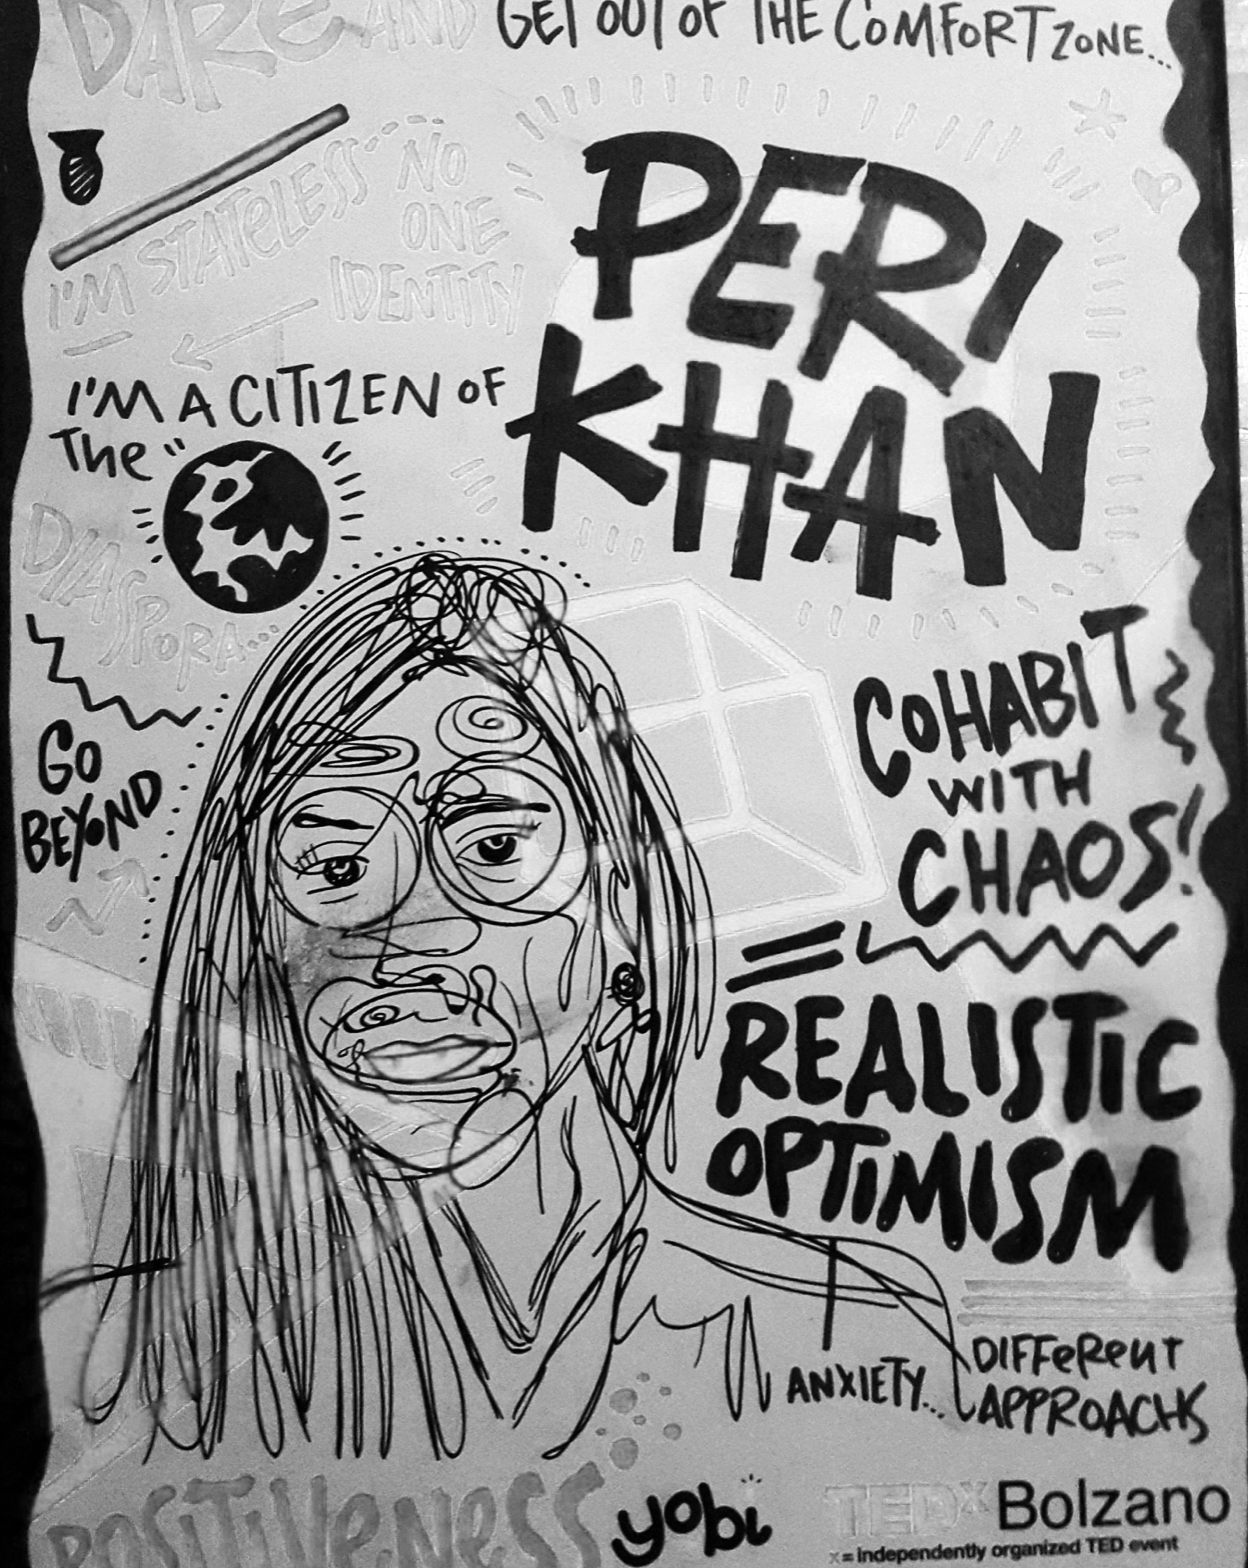 DARE AND
GET OUT OF THE COMFORT ZONE...
I'M STATELESS
NO
ONE
IDENTITY
PERI
KHAN
I'M A CITIZEN OF
The "
DIASPORA...
GO
BEYOND
COHABIT
WITH
CHAOS!
= REALISTIC
OPTIMISM
+ ANXIETY...
DIFFERENT
APPROACHS
POSITIVENESS
yobi
TEDx Bolzano
x = independently organized TED event